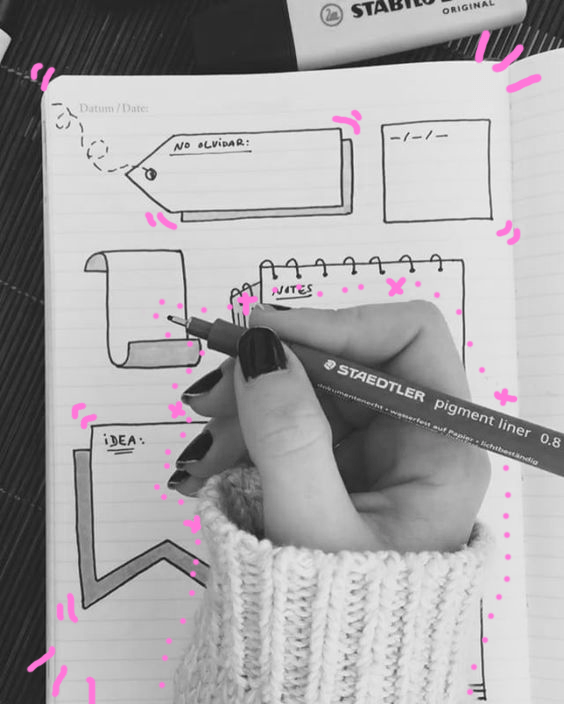 STABILO
ORIGINAL
Datum / Date:
NO OLVIDAR:
-/-/-
NOTES
STAEDTLER pigment liner 0.8
dokumentenecht • wasserfest auf Papier • lichtbeständig
iDEA: